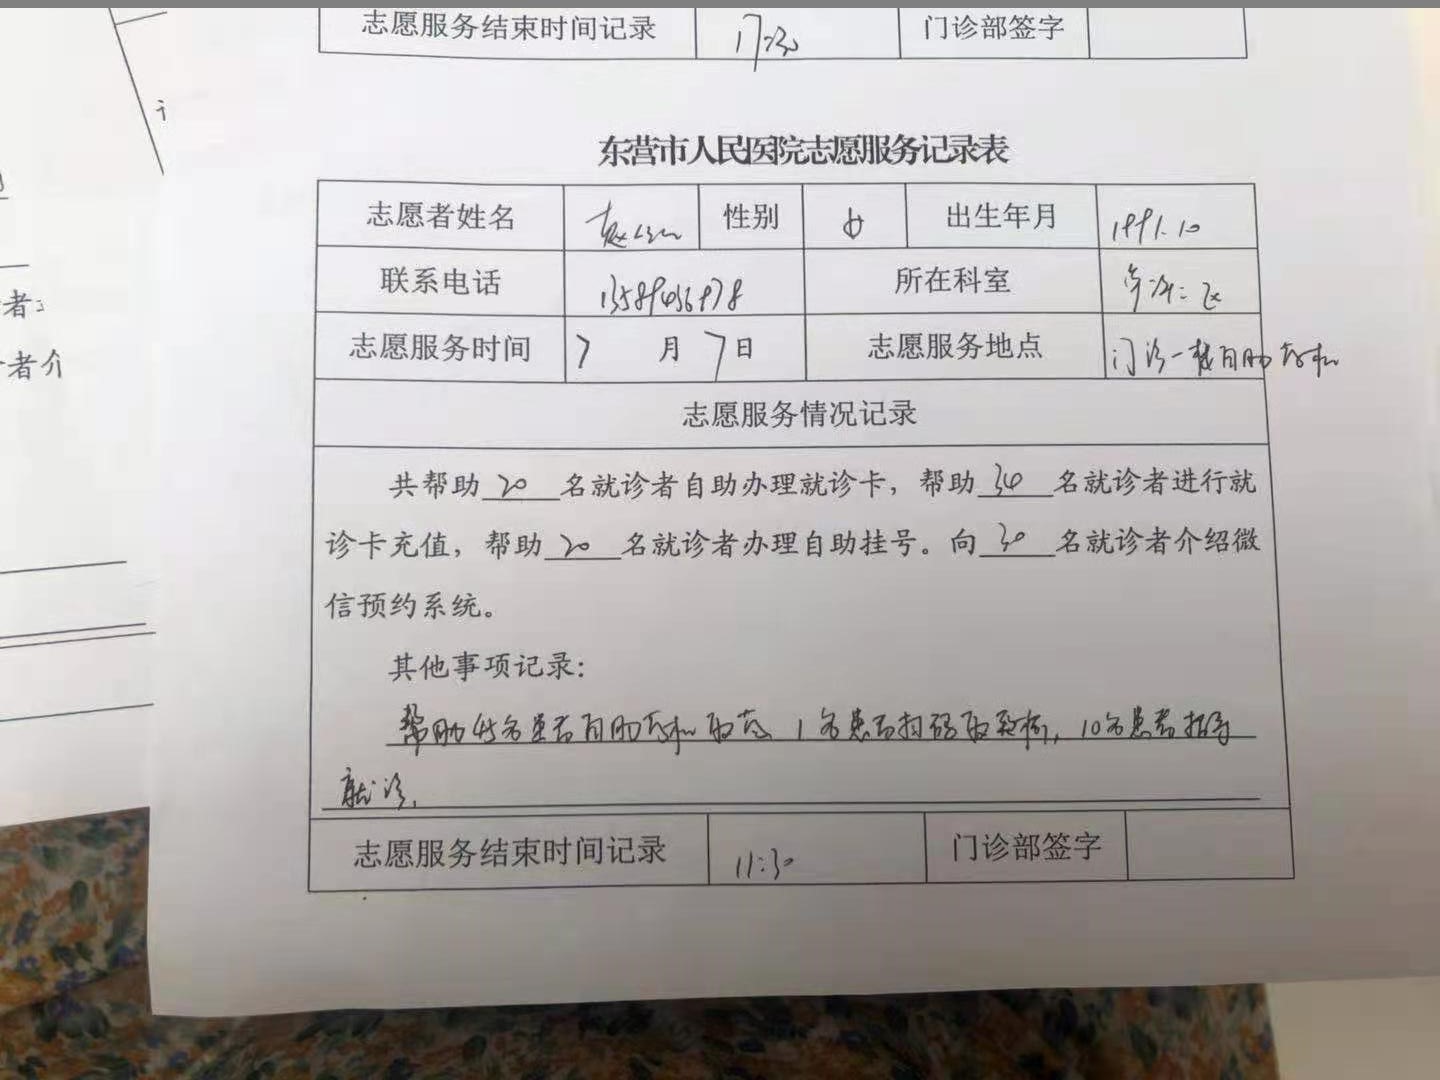 志愿服务结束时间记录 17:30 门诊部签字
东营市人民医院志愿服务记录表
志愿者姓名 性别 女 出生年月 1991.10
联系电话 所在科室
志愿服务时间 7月7日 志愿服务地点 门诊一楼自助药机
志愿服务情况记录
共帮助20名就诊者自助办理就诊卡，帮助34名就诊者进行就
诊卡充值，帮助20名就诊者办理自助挂号。向30名就诊者介绍微
信预约系统。
其他事项记录：
帮助45名患者自助药机取药 1名患者扫码取 10名患者指导
就诊.
志愿服务结束时间记录 11:30 门诊部签字
者
者介